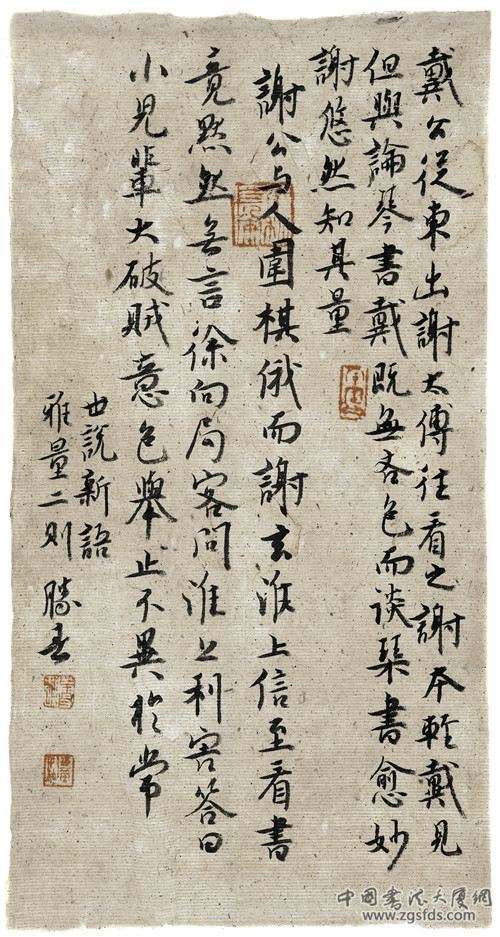 戴公從東出謝太傅往看之謝本輕戴見
但與論琴書戴既無吝色而談琴書愈妙
謝悠然知其量
謝公與人圍棋俄而謝玄淮上信至看書
竟默然無言徐向局客問淮上利害答曰
小兒輩大破賊意色舉止不異於常
世說新語
雅量二則 勝春
中国书法大厦網
www.zgsfds.com